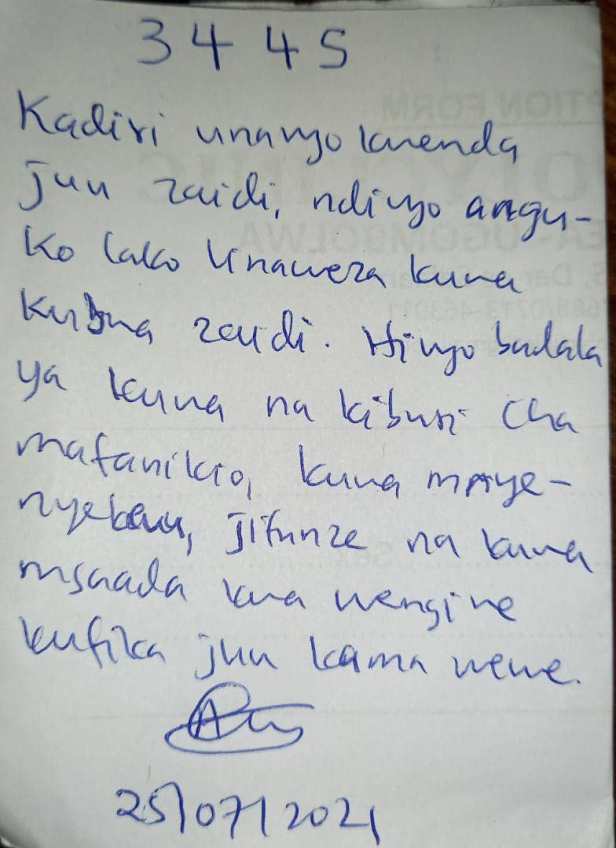 3445
Kadiri unavyokwenda
juu zaidi, ndivyo angu-
ko lako linaweza kuwa
kubwa zaidi. Hivyo badala
ya kuwa na kiburi cha
mafanikio, kuwa mnye-
nyekevu, jifunze na kuwa
msaada kwa wengine
kufika juu kama wewe.
25/07/2021